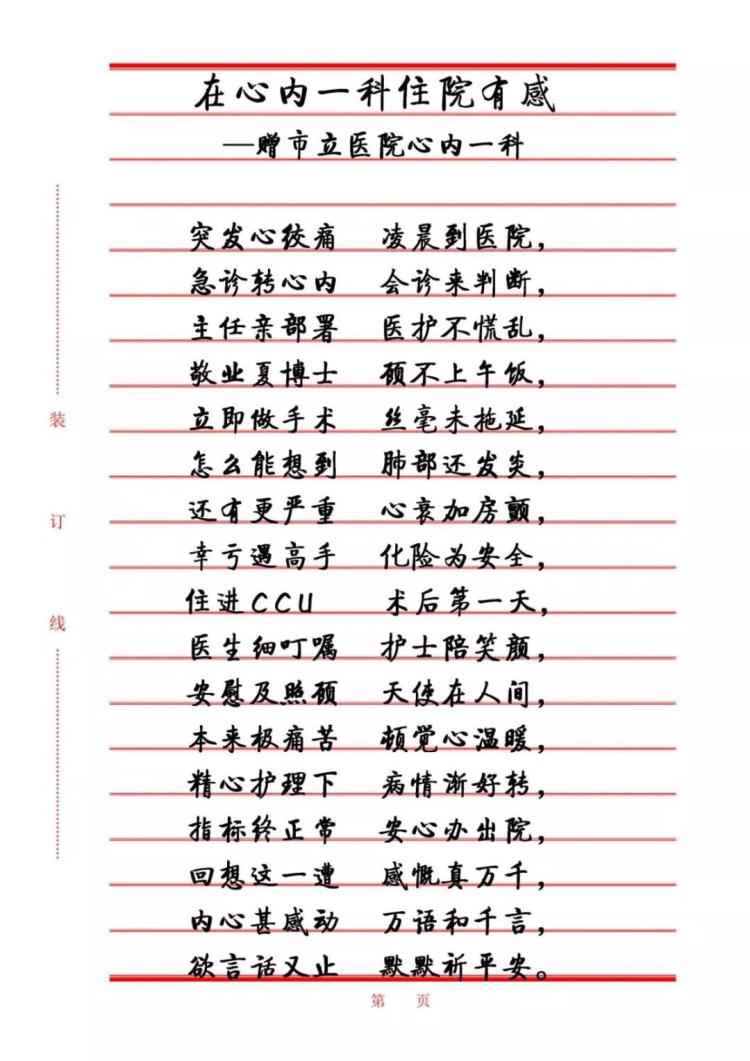 在心内一科住院有感
—赠市立医院心内一科
突发心绞痛 凌晨到医院,
急诊转心内 会诊来判断,
主任亲部署 医护不慌乱,
敬业夏博士 顾不上午饭,
立即做手术 丝毫未拖延,
怎么能想到 肺部还发炎,
还有更严重 心衰加房颤,
幸亏遇高手 化险为安全,
住进CCU 术后第一天,
医生细叮嘱 护士陪笑颜,
安慰及照顾 天使在人间,
本来极痛苦 顿觉心温暖,
精心护理下 病情渐好转,
指标终正常 安心办出院,
回想这一遭 感慨真万千,
内心甚感动 万语和千言,
欲言话又止 默默祈平安。
装
订
线
第 页